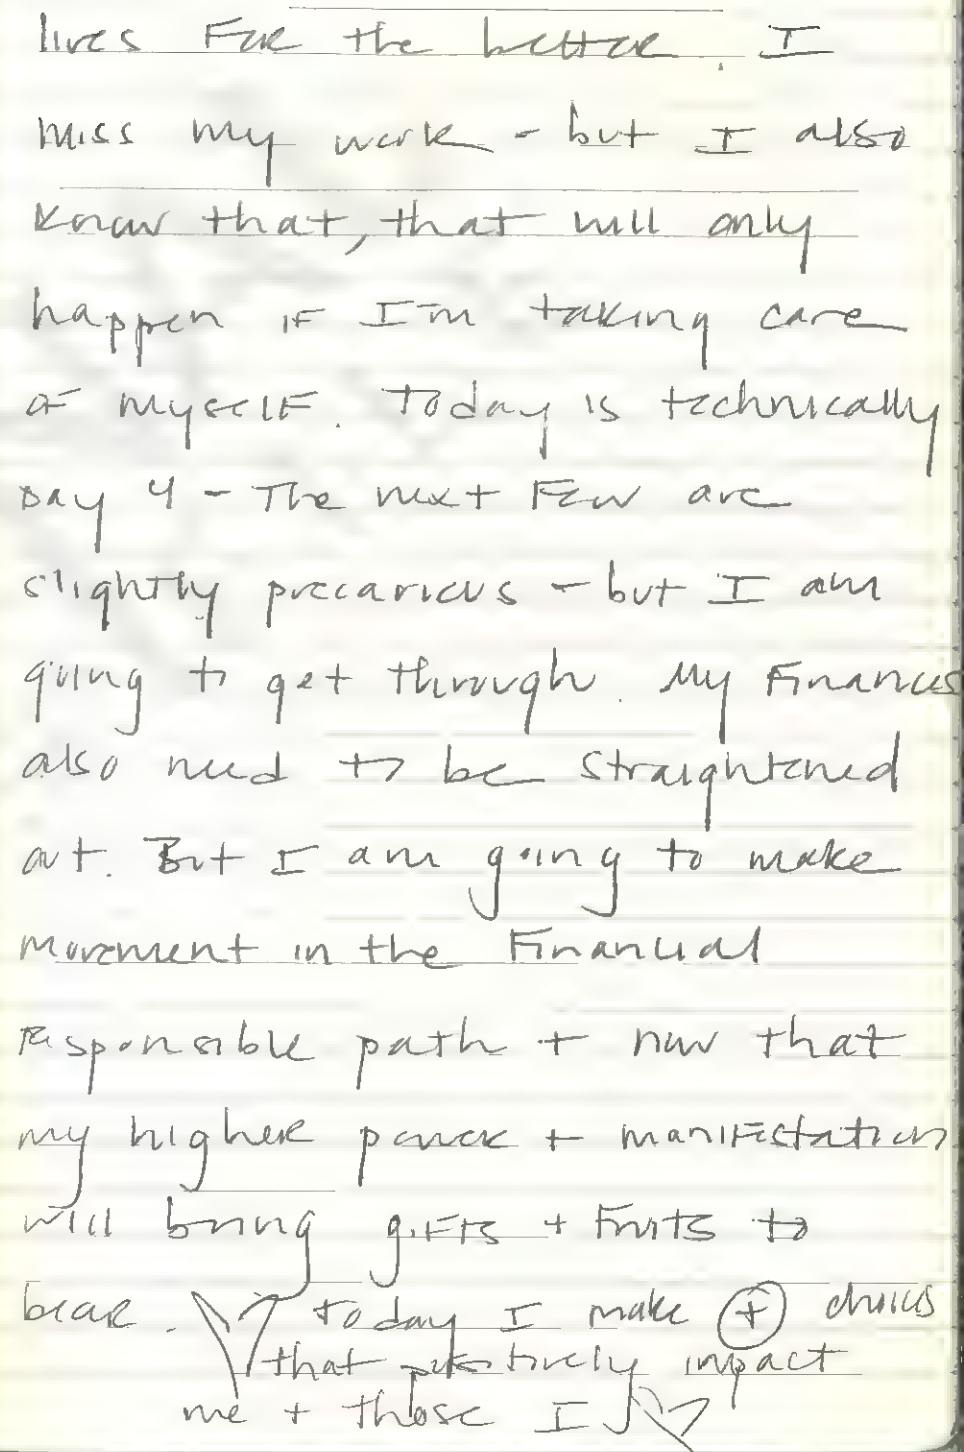 lives For the better. I
miss my work - but I also
know that, that will only
happen if I'm taking care
of myself. Today is technically
Day 4 - The next Few are
slightly precarious - but I am
going to get through. My Finances
also need to be straightened
out. But I am going to make
movement in the Financial
responsible path + now that
my higher power + manifestation
will bring gifts + Fruits to
bear. Today I make + choices
that positively impact
me + those I